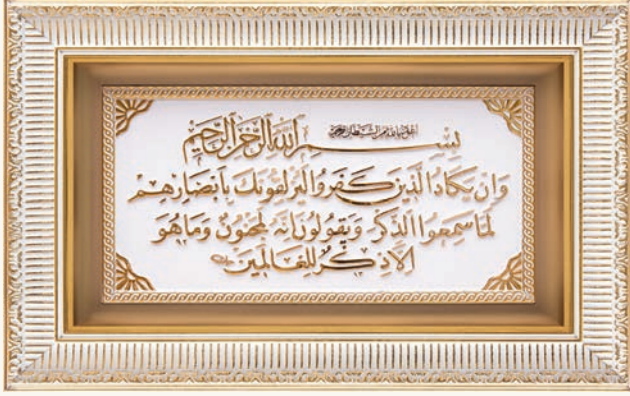 أعوذ بالله من الشيطان الرجيم
بسم الله الرحمن الرحيم
وان يكاد الذين كفروا ليزلقونك بابصارهم
لما سمعوا الذكر ويقولون انه لمجنون وما هو
الا ذكر للعالمين